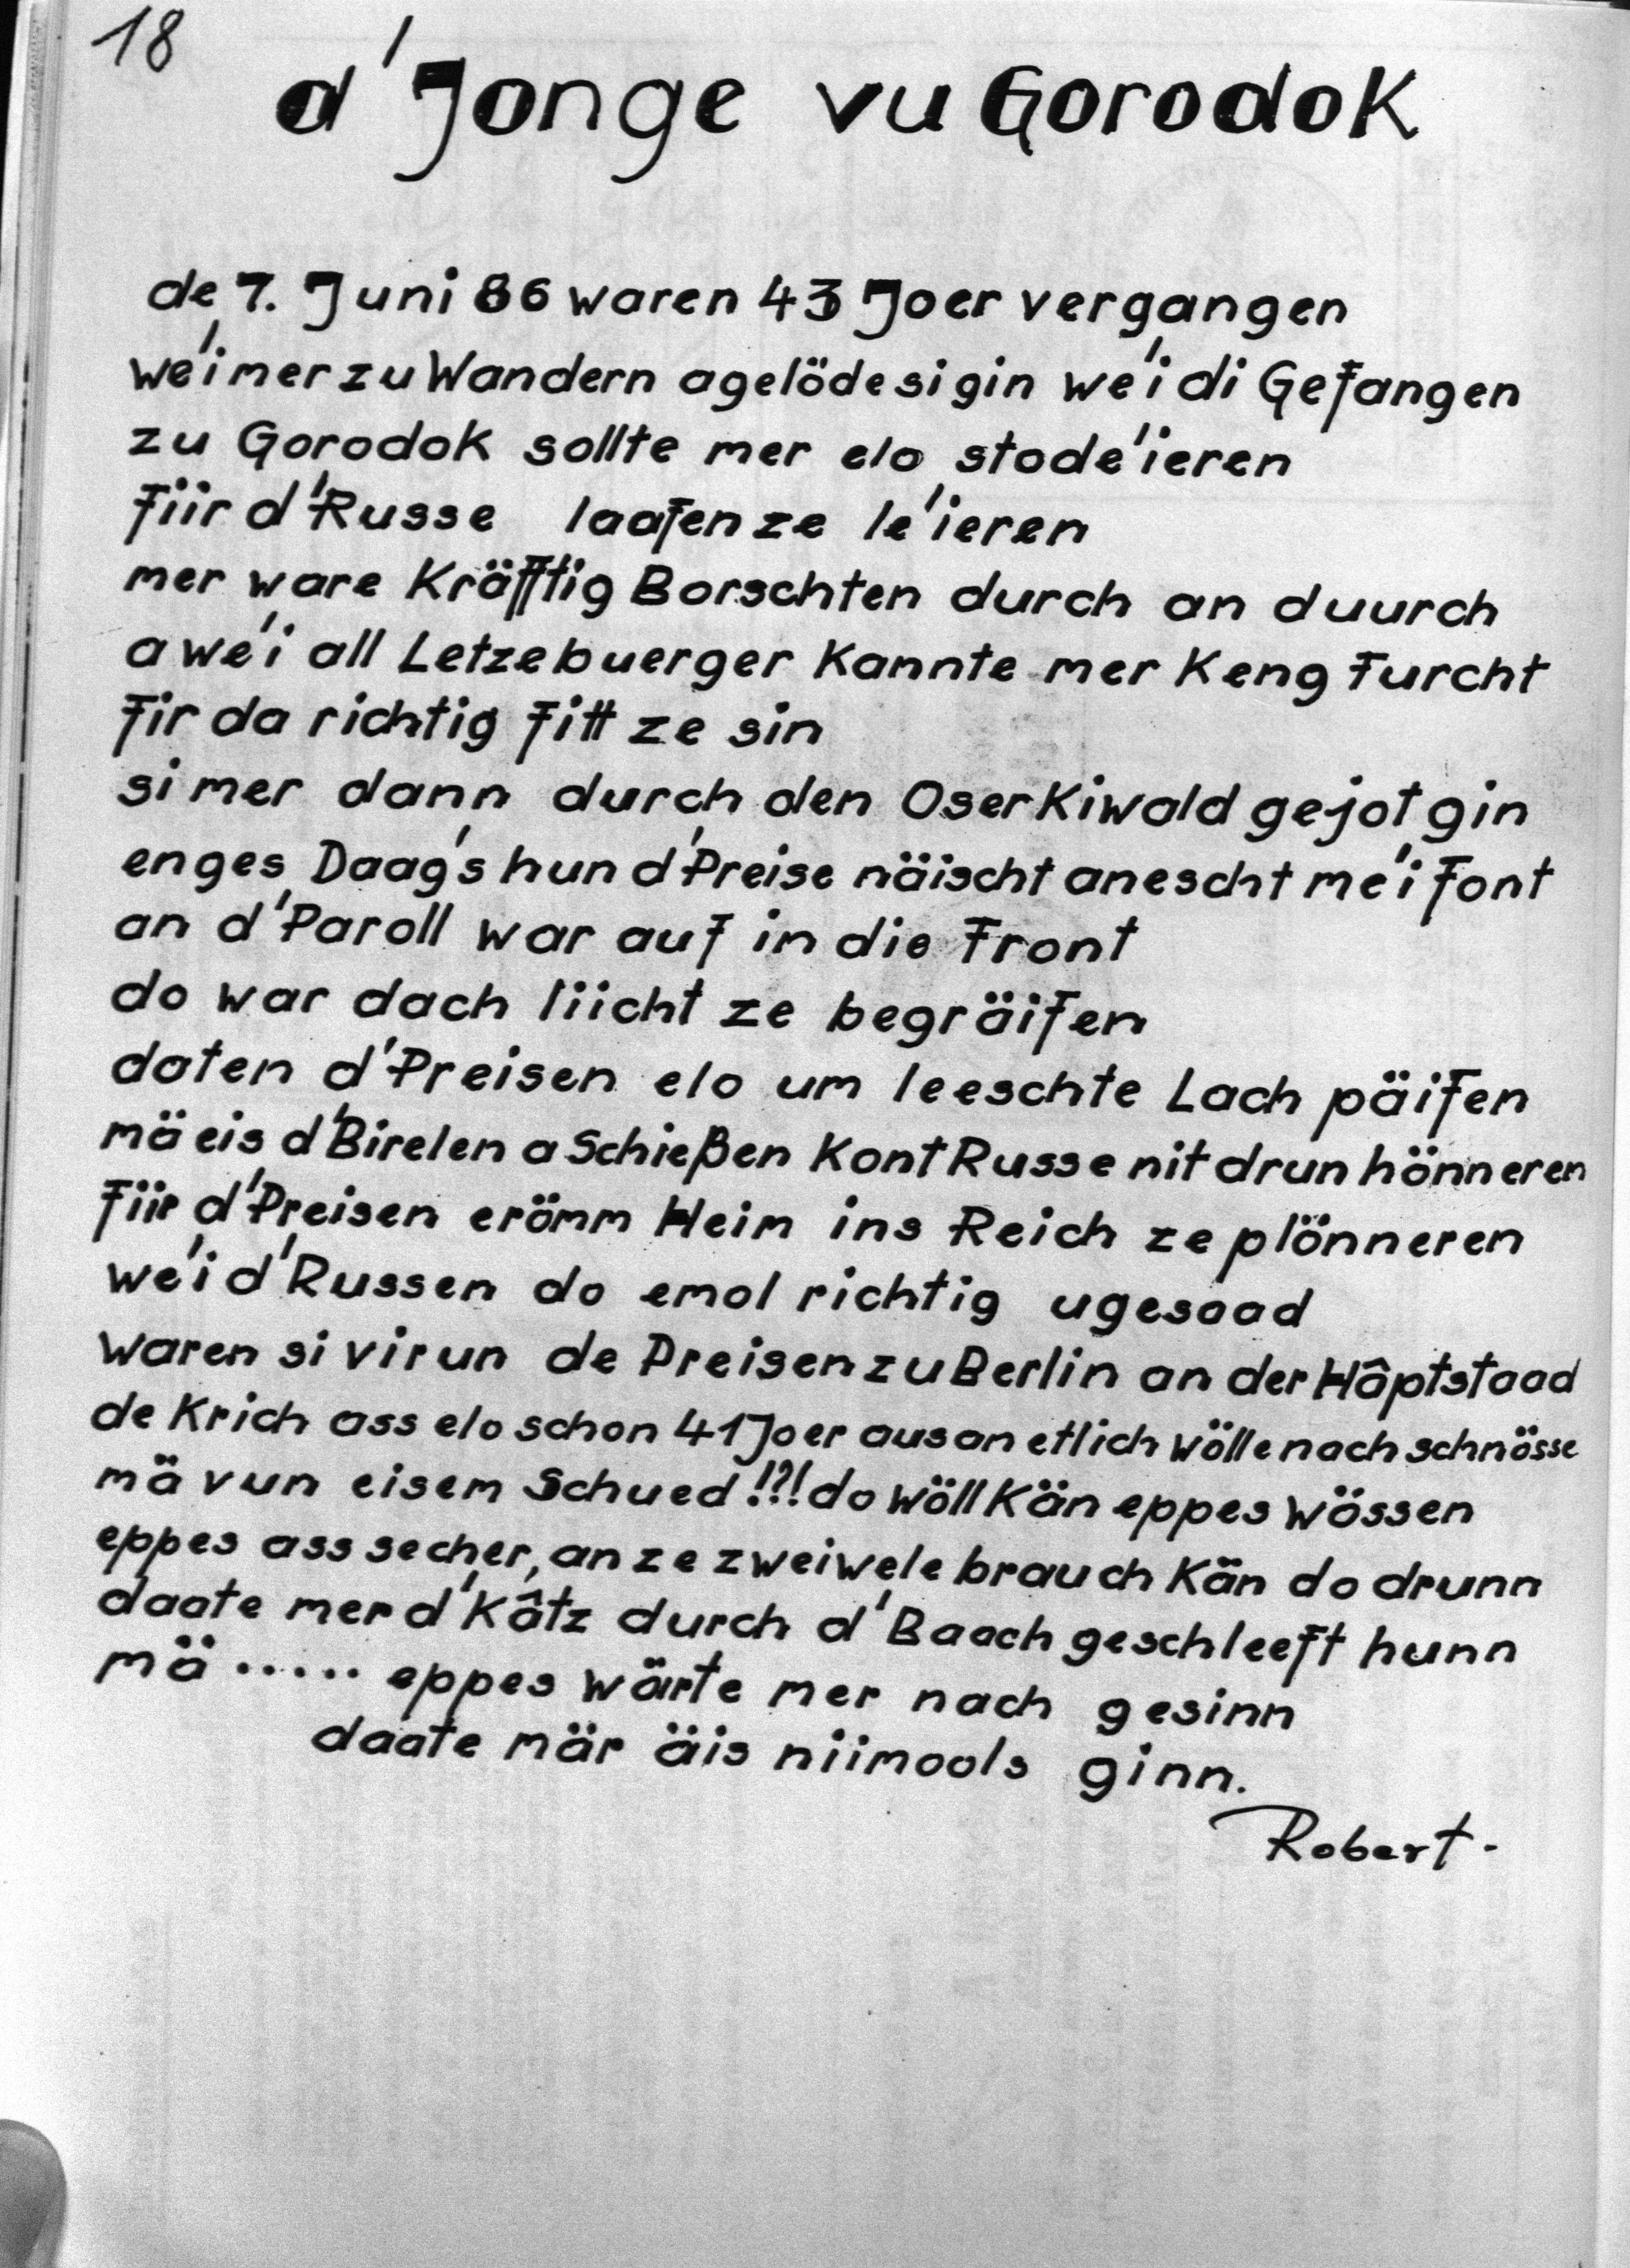 18
d'Jonge vu Gorodok
de 7. Juni 86 waren 43 Joer vergangen
we'i mer zu Wandern agelöde si gin we'i di Gefangen
zu Gorodok sollte mer elo stode'ieren
fiir d'Russe laafen ze le'ieren
mer ware Kräfftig Borschten durch an duurch
a we'i all Letzebuerger Kannte mer Keng Furcht
fir da richtig fitt ze sin
si mer dann durch den Oserkiwald gejot gin
enges Daag's hun d'Preise näischt anescht me'i font
an d'Paroll war auf in die Front
do war dach liicht ze begräifen
daten d'Preisen elo um leeschte Lach päifen
mä eis d'Birelen a Schießen Kont Russe nit drun hönneren
Fiir d'Preisen erömm Heim ins Reich ze plönneren
we'i d'Russen do emol richtig ugesaad
waren si virun de Preisen zu Berlin an der Hâptstaad
de Krich ass elo schon 41 Joer aus an etlich wölle nach schnösse
mä vun eisem Schued !?! do wöll Kän eppes wössen
eppes ass secher, an ze zweiwele brauch Kän do drunn
daate mer d'Kâtz durch d'Baach geschleeft hunn
mä ..... eppes wärte mer nach gesinn
daate mär äis niimools ginn.
Robert.